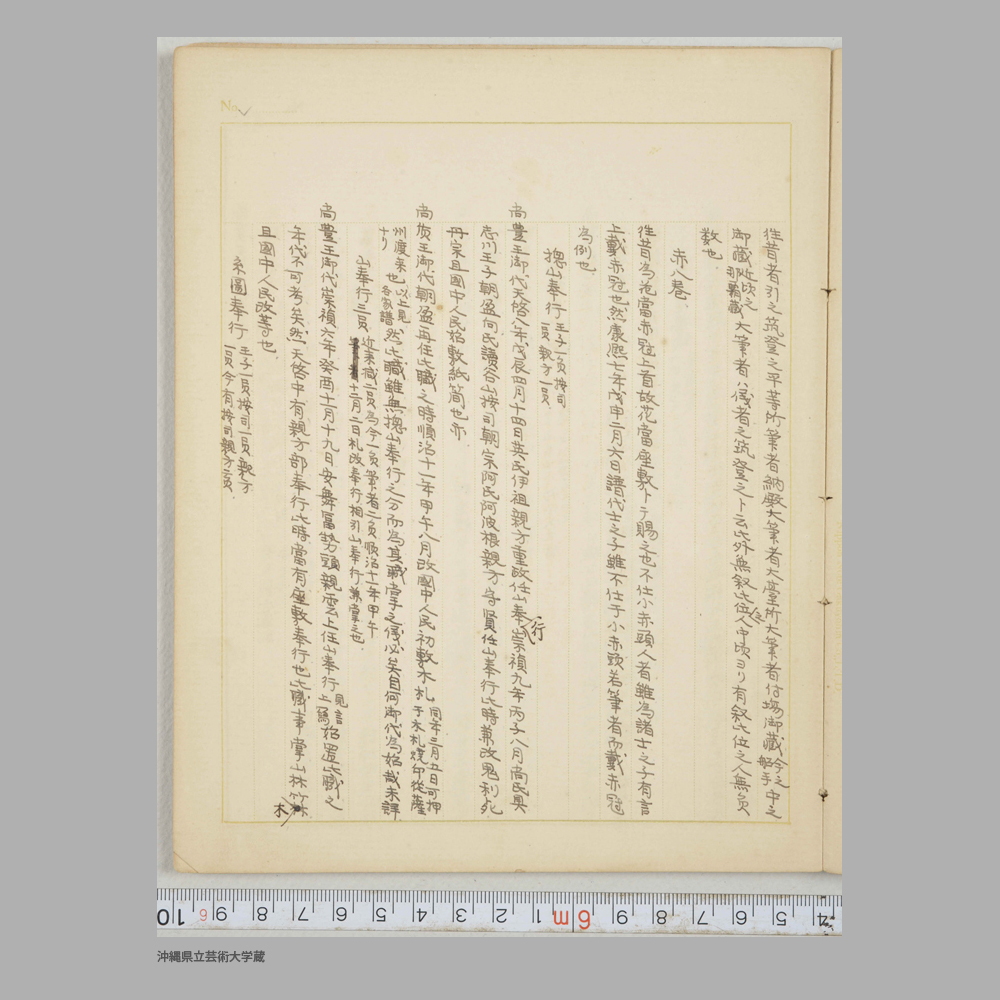 往昔者引之筑登之平等所筆者納殿大筆者大臺所大筆者仕場御藏今之船手中之
御藏那覇藏近頃之大筆者ハ儀者之筑登之ト云此外無叙此位人中頃ヨリ有叙此位之人無員
数也
赤八巻
往昔為花當赤冠上首故花當座敷トテ賜之也不仕小赤頭人者雖為諸士之子有言
上戴赤冠也然康熙七年戊申二月六日譜代士之子雖不仕于小赤頭若筆者而戴赤冠
為例也
摠山奉行 王子一員按司一員親方一員
尚豊王御代天啓八年戊辰四月十四日英氏伊祖親方重政任山奉行崇禎九年丙子八月尚氏具
志川王子朝盈向氏讀谷山按司朝宗阿氏阿波根親方守賢任山奉行此時兼改鬼利死
丹宗且國中人民始敷紙簡也亦
尚质王御代朝盈再任此職之時順治十一年甲午八月改國中人民初敷木札 同年三月五日可押于木札燒印從薩
州渡来也 以上見各家譜 然此職雖無摠山奉行之分而為其職掌之儀必矣自何御代為始哉未詳
ナリ
山奉行二員 近来減一員為今一員筆者二員順治十一年甲午十二月二日札改奉行相引山奉行兼掌之也
尚豊王御代崇禎六年癸酉十一月十九日安舞冨勢頭親雲上任山奉行 見言上寫 始置此職之
年代不可考矣然天啓中有親方部奉行此時當有座敷奉行也此職事掌山林竹木
且國中人民改等也
系圖奉行 王子一員按司一員親方一員今有按司親方二員
No.
10 9 8 7 6 5 4 3 2 1 6m 9 8 7 6 5 4
沖縄県立芸術大学蔵